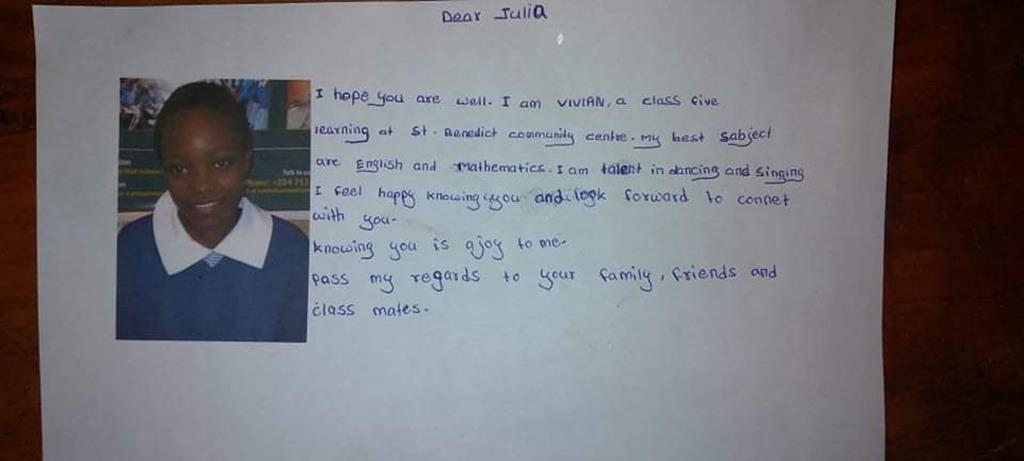 Dear Julia
I hope you are well. I am VIVIAN, a class five
learning at St. Benedict community centre. My best sabject
are English and Mathematics. I am talent in dancing and singing
I feel happy knowing you and look forward to connet
with you.
knowing you is a joy to me.
pass my regards to your family, friends and
class mates.
Talk to us
Phone: +254 713